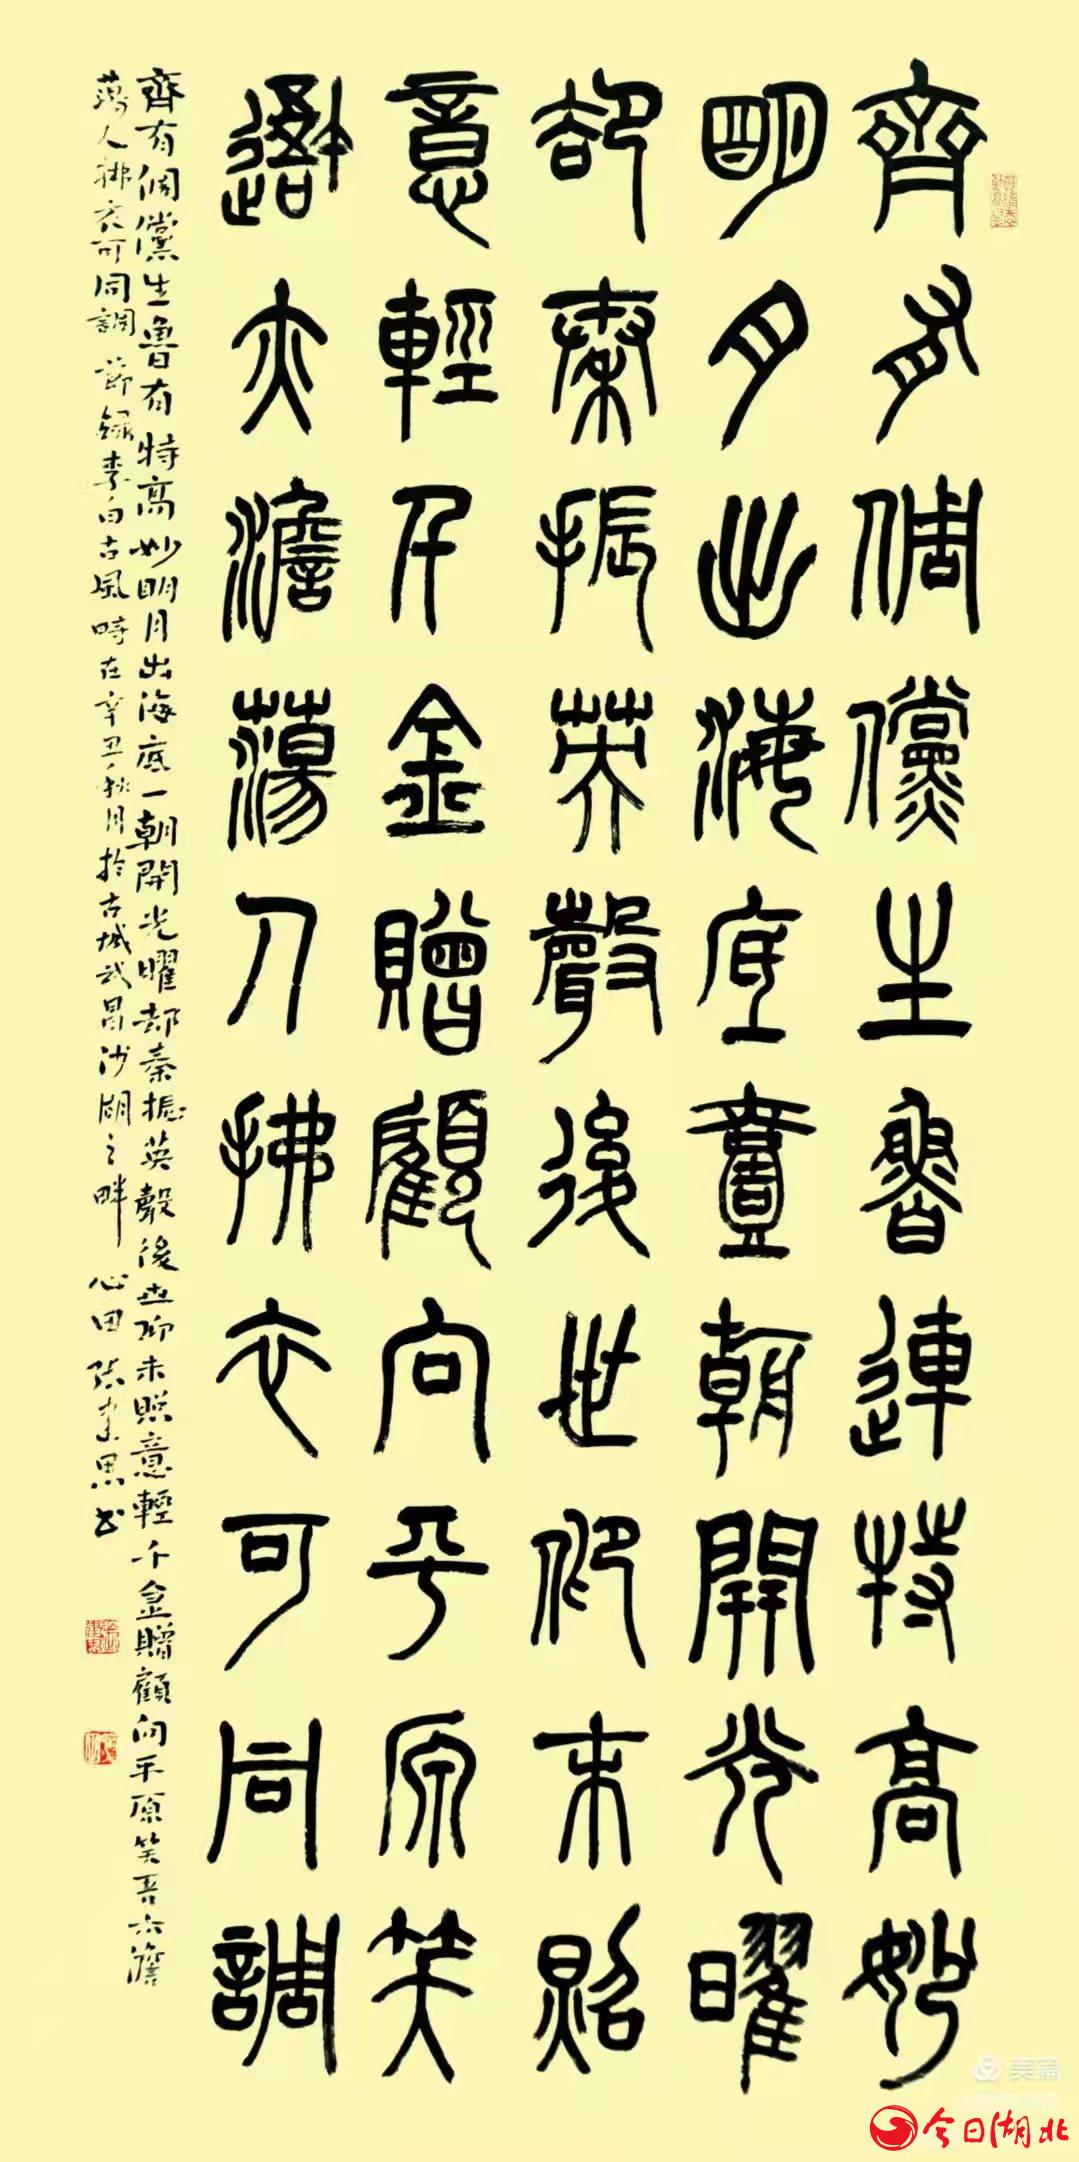 齊有倜儻生魯連特高妙
明月出海底壹朝開光曜
却秦振英聲後世仰末照
意輕千金贈顧向平原笑
吾亦澹蕩人拂衣可同調
齊有倜儻生魯有特高妙明月出海底一朝開光曜却秦振英聲後世仰末照意輕千金贈顧向平原笑吾亦澹
蕩人拂衣可同調 節錄李白古風 時在辛丑秋月於古城武昌沙湖之畔 心田 書
美篇
今日湖北